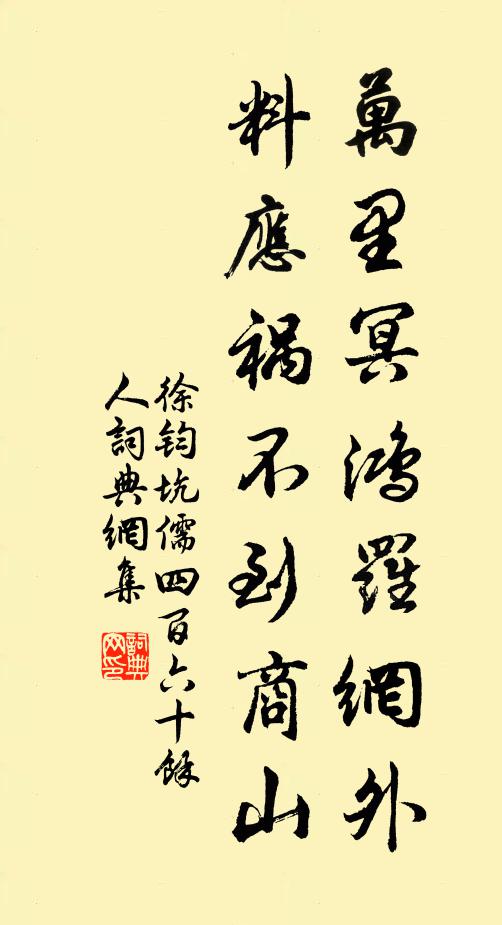 萬里冥鴻羅網外
料應禍不到商山
徐鈞坑儒四百六十餘
人詞典網集
詞典
网印